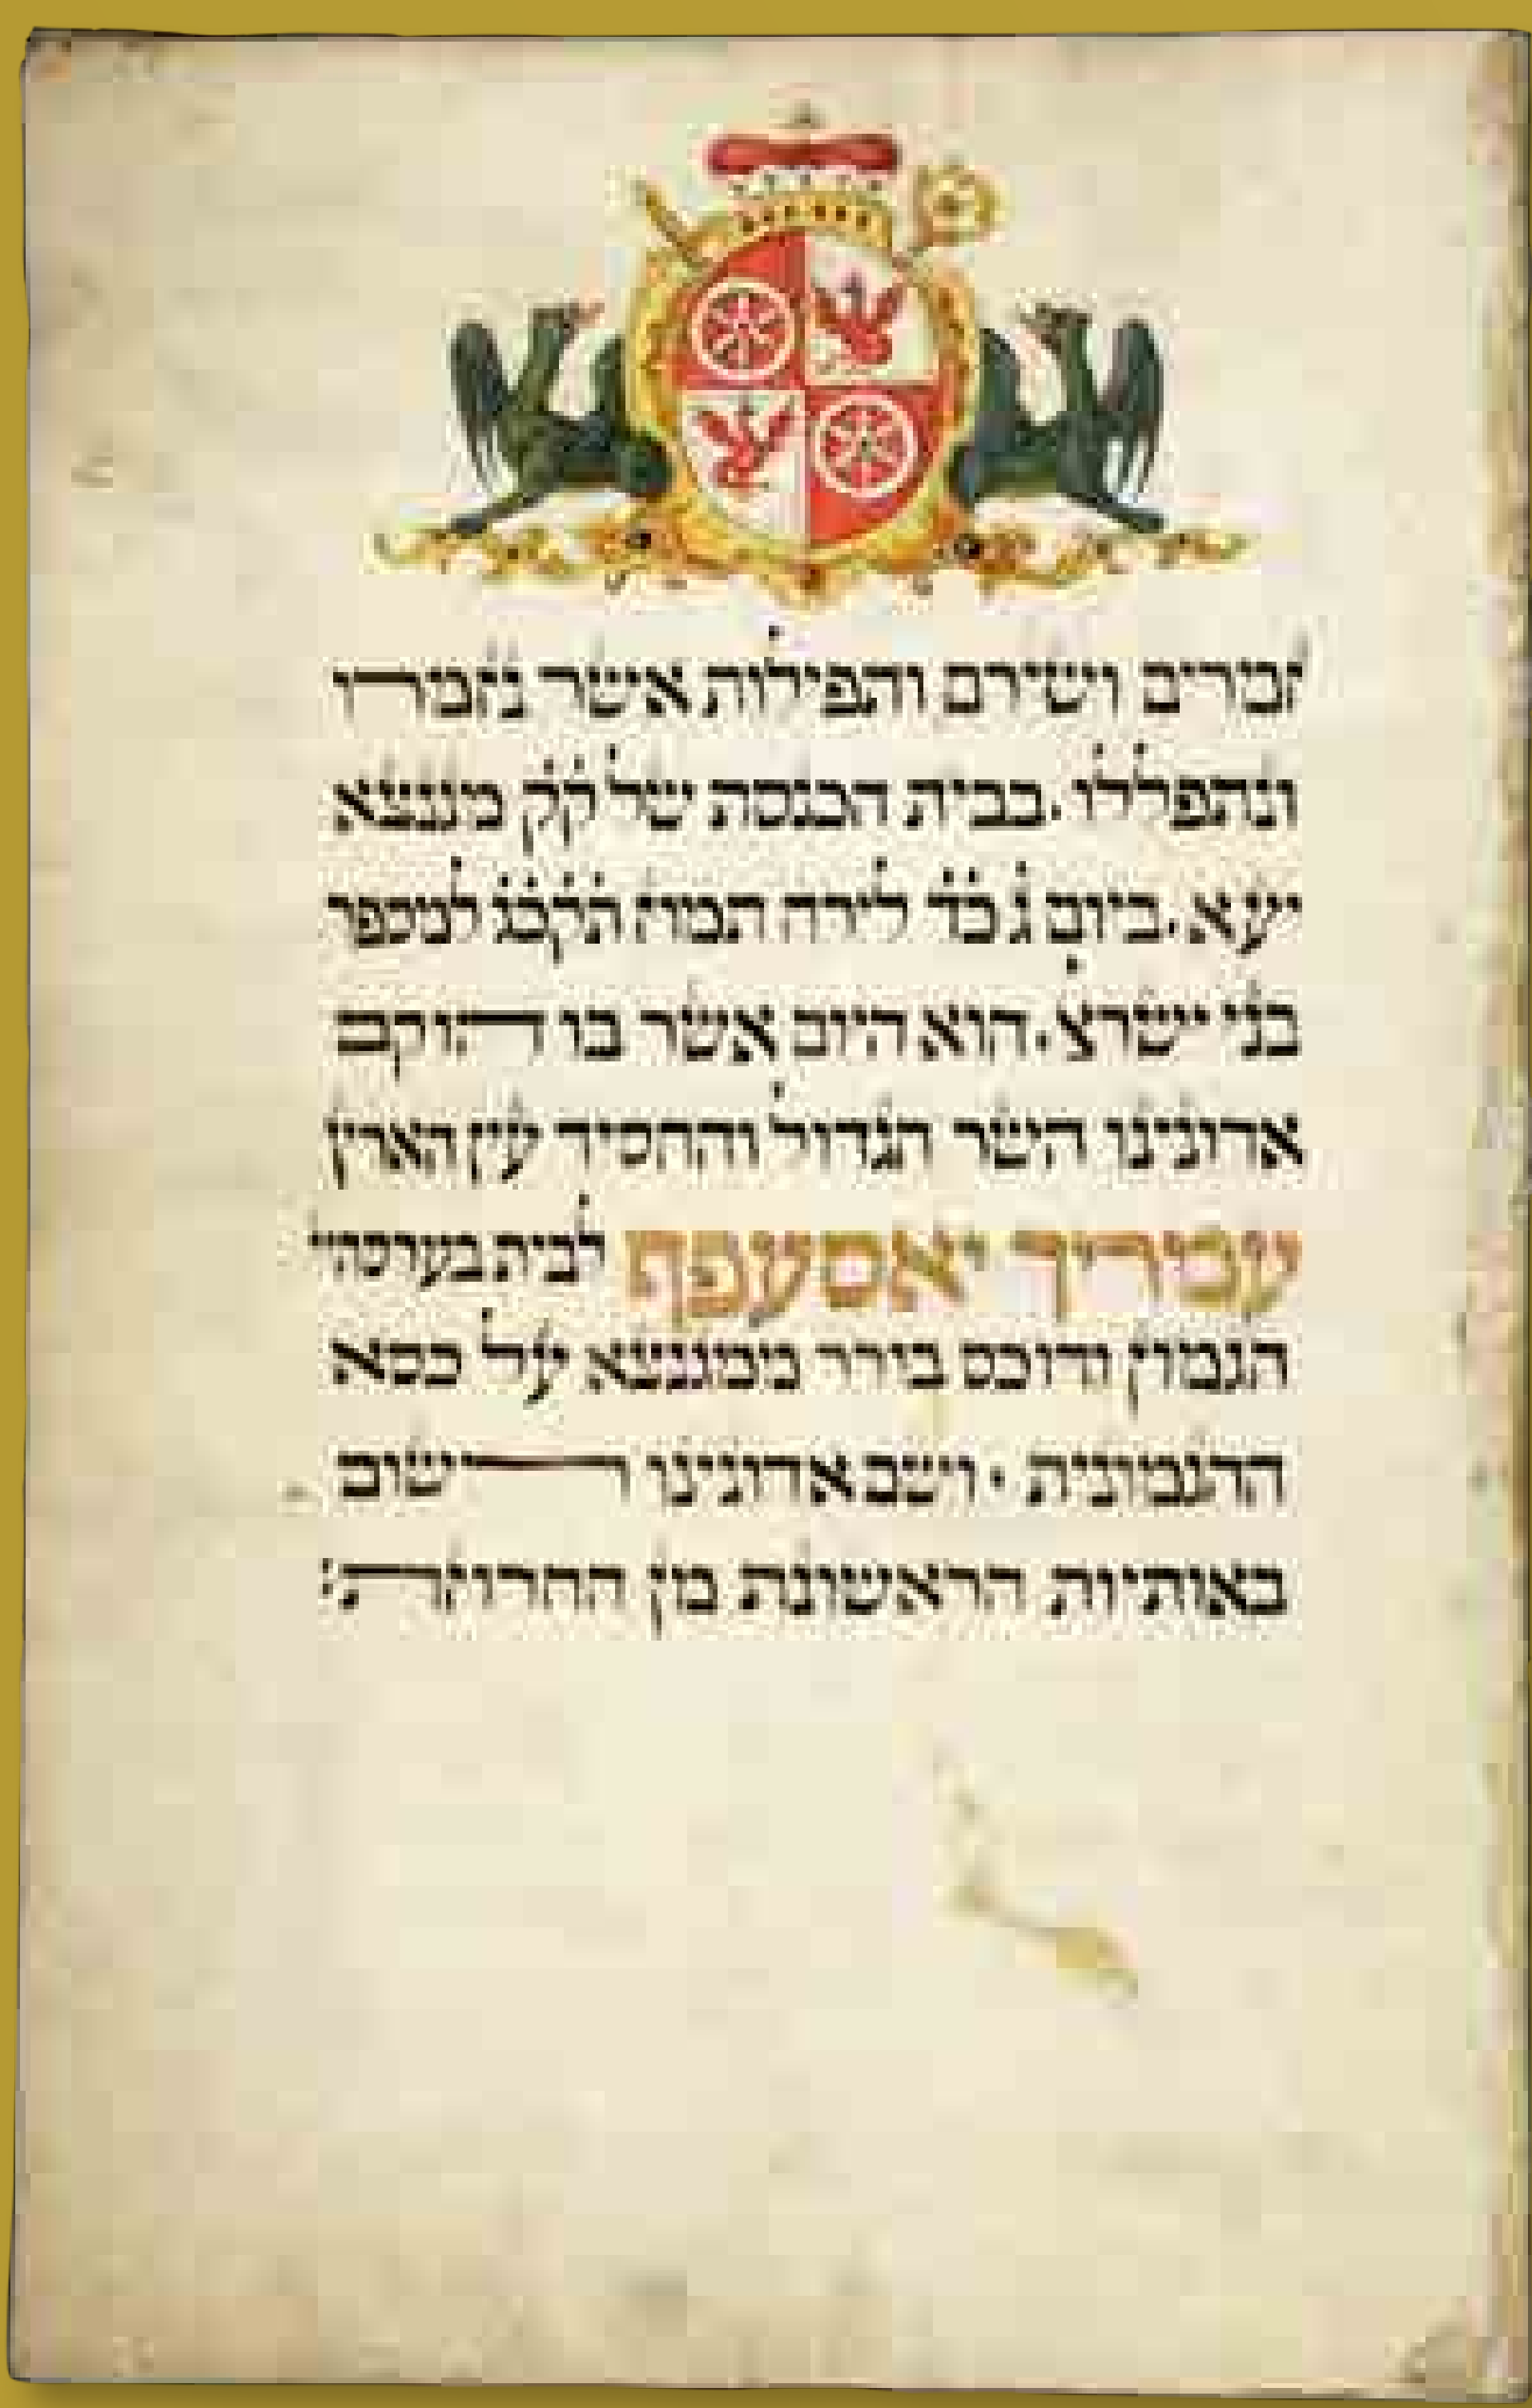 זמרים ושירים ותפילות אשר נזמרו
ונתפללו. בבית הכנסת של ק״ק מגנצא
יע״א. ביום ג׳ כ״ד לירח תמוז תקכ״ג למספר
בני ישרא׳. הוא היום אשר בו הוקם
אדונינו השר הגדול והחסיד עיר הארץ
עמריך יאסעפף לבית
הגמון ודוכס בורר ממגנצא על כסא
ההגמונית. ושם אדונינו רשום
באותיות הראשונת מן החרוזות: